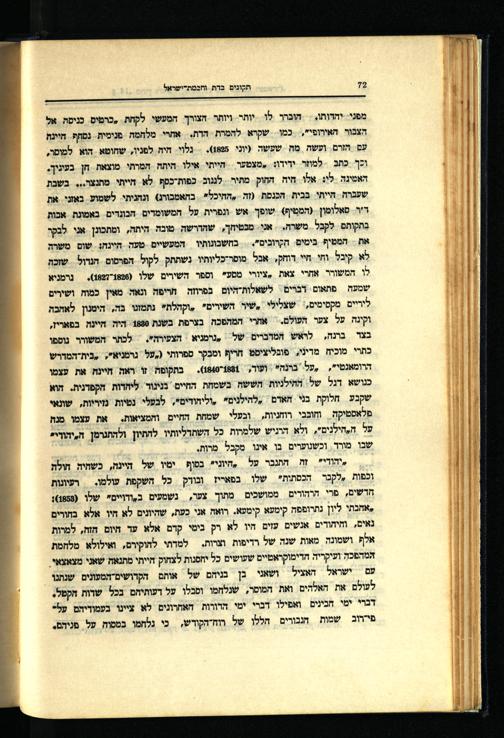 72
תקונים בדת וחכמת־ישראל
מפני יהדותו. הוברר לו יותר ויותר הצורך המעשי לקחת „כרטיס כניסה אל
הצבור האירופי”, כמו שקרא להמרת הדת. אחרי מלחמה פנימית נסחף היינה
עם הזרם ועשה מה שעשה (יוני 1825). גלוי היה לפניו, שחוטא הוא למוסר,
וכך כתב למוזר ידידו: „מצטער הייתי אילו היתה המרתי מוצאת חן בעיניך.
האמינה לי: אלו היה החוק מתיר לגנוב כפות־כסף לא הייתי מתנצר... בשבת
שעברה הייתי בבית הכנסת (זה „ההיכל” בהאמבורג) ונהניתי לשמוע באזני את
ד״ר סאלומון (המטיף) שופך אש וגפרית על המשומדים הבוגדים באמונת אבות
בתקותם לקבל משרה. אני מבטיחך, שהדרשה טובה היתה, ומתכונן אני לבקר
את המטיף בימים הקרובים”. בחשבונותיו המעשיים טעה היינה: שום משרה
לא קיבל וחי חיי דוחק, אבל מוסר־כליותיו נשתתק לקול הפרסום הגדול שזכה
לו המשורר אחרי צאת „ציורי מסע” וספר השירים שלו (1826–1827). גרמניא
שמעה פתאום דברים לשאלות־היום בפרוזה חריפה ונאה מאין כמוה ושירים
ליריים מקסימים, שצלילי „שיר השירים” ו„קהלת” נתמזגו בה, הימנון לאהבה
וקינה על צער העולם. אחרי המהפכה בצרפת בשנת 1830 היה היינה בפאריז,
בצד ברנה, לראש המדברים של „גרמניא הצעירה”. לכתר המשורר נוספו
כתרי מוכיח מדיני, פובליציסט חריף ומבקר ספרותי („על גרמניא”, „בית־המדרש
הרומאנטי”, „על ברנה” ועוד, 1831–1840). בתקופה זו ראה היינה את עצמו
כנושא דגל של החילניות הששה בשמחת החיים בניגוד ליהדות הקפדנית. הוא
שקבע חלוקת בני האדם ל„הילנים” ול„יהודים”, לבעלי נטיות נזיריות, שונאי
פלאסטיקה וחובבי רוחניות, ובעלי שמחת החיים והמציאות. את עצמו מנה
על ה„הילנים”, ולא הרגיש שלמרות כל השתדליותיו להתיון ולהתגרמן ה„יהודי”
שבו מורד וכשנוערים בו אינו מקבל מרות.
„יהודי” זה התגבר על „היוני” בסוף ימיו של היינה, כשהיה חולה
וכפות „לקבר הכסתות” שלו בפאריז ובודק כל השקפת עולמו. רעיונות
חדשים, פרי הרהורים ממושכים מתוך צער, נשמעים ב„וידויים” שלו (1853):
„אהבתי ליון נתרופפה קימעא קימעא. רואה אני כעת, שהיונים לא היו אלא בחורים
נאים, והיהודים אנשים עזים היו לא רק בימי קדם אלא עד היום הזה, למרות
אלף ושמונה מאות שנה של רדיפות וצרות. למדתי להוקירם, ואילולא מלחמת
המהפכה ועיקריה הדימוקראטיים שעושים כל יחסנות לצחוק הייתי מתגאה שאני מצאצאי
עם ישראל האציל ושאני בן בניהם של אותם הקדושים־המעונים שנתנו
לעולם את האלהים ואת המוסר, שנלחמו וסבלו על דעותיהם בכל שדות הקטל.
דברי ימי הבינים ואפילו דברי ימי הדורות האחרונים לא ציינו בעמודיהם על־
פי־רוב שמות הגבורים הללו של רוח־הקודש, כי נלחמו במסוה על פניהם.